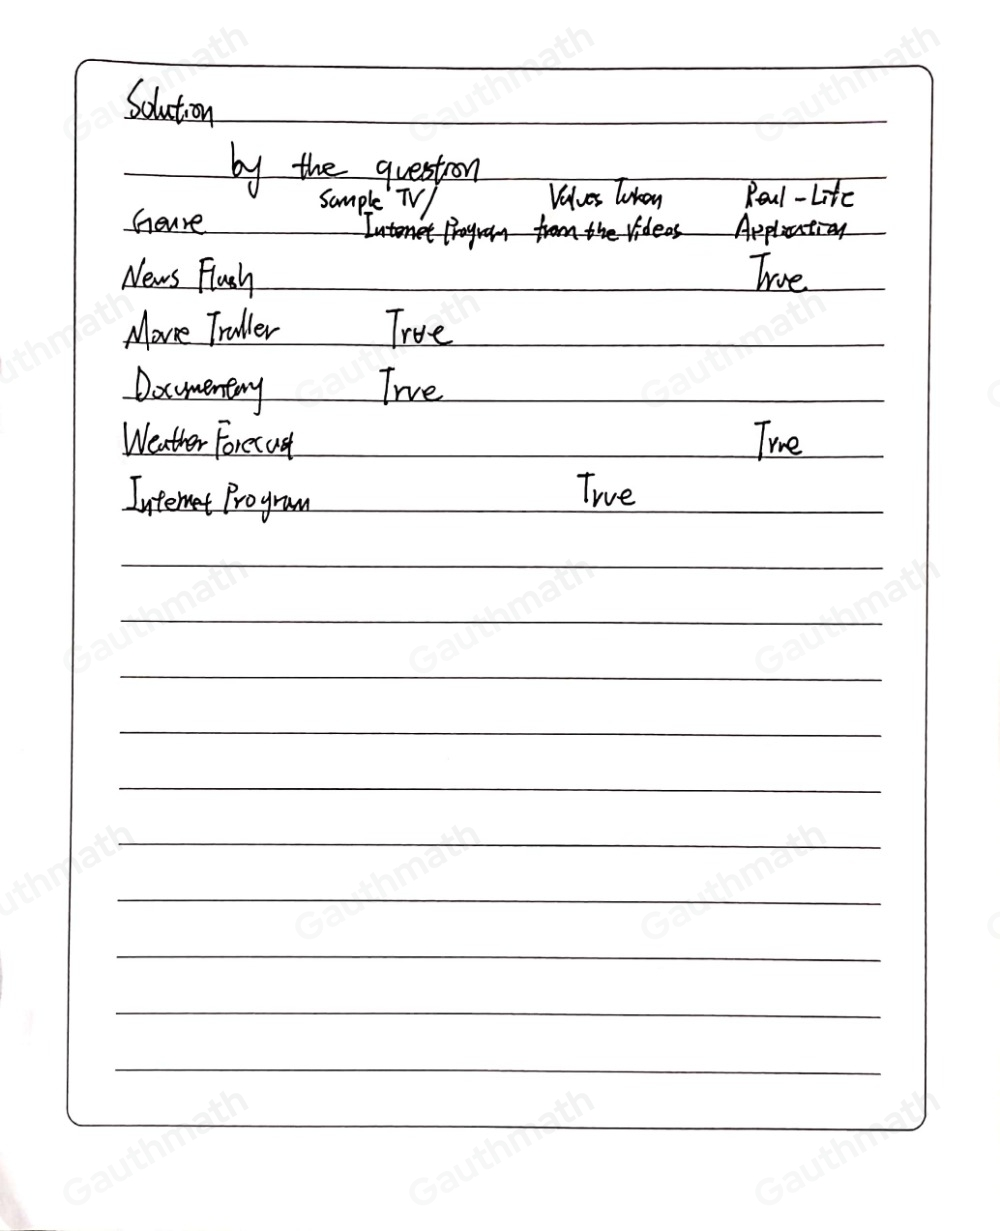 Solution
by the question
Genre Sample TV/ Internet Program Values Taken from the Videos Real-Life Application
News Flash True
Movie Trailler True
Documentary True
Weather Forecast True
Internet Program True
Gauthmath